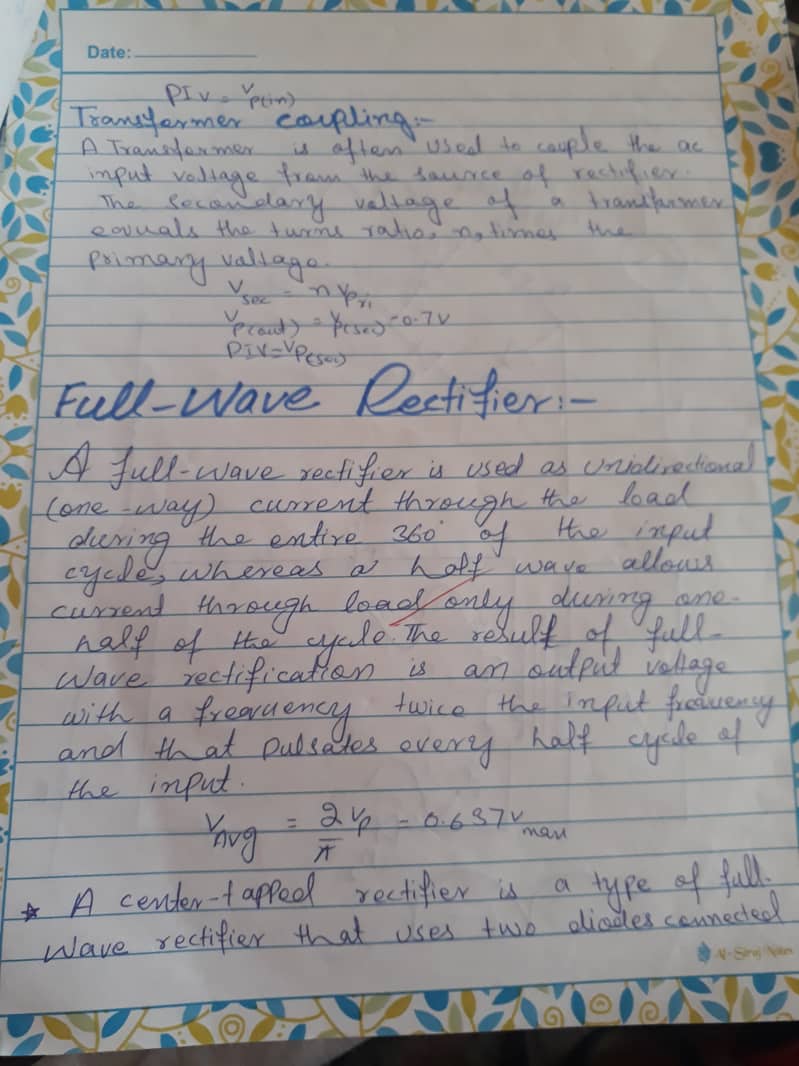 Date:
PIV = Vp(in)
Transformer coupling:-
A Transformer is often used to couple the ac
input voltage from the source of rectifier.
The Secondary voltage of a transformer
equals the turns ratio, n, times the
primary voltage.
Vsec = n Vpri
Vp(out) = Vp(sec) - 0.7V
PIV = Vp(sec)
Full-Wave Rectifier:-
A full-wave rectifier is used as unidirectional
(one-way) current through the load
during the entire 360° of the input
cycle, whereas a half wave allows
current through load only during one-
half of the cycle. The result of full-
Wave rectification is an output voltage
with a frequency twice the input frequency
and that Pulsates every half cycle of
the input.
VAvg = 2Vp/π = 0.637Vmax
* A center-tapped rectifier is a type of full-
Wave rectifier that uses two diodes connected